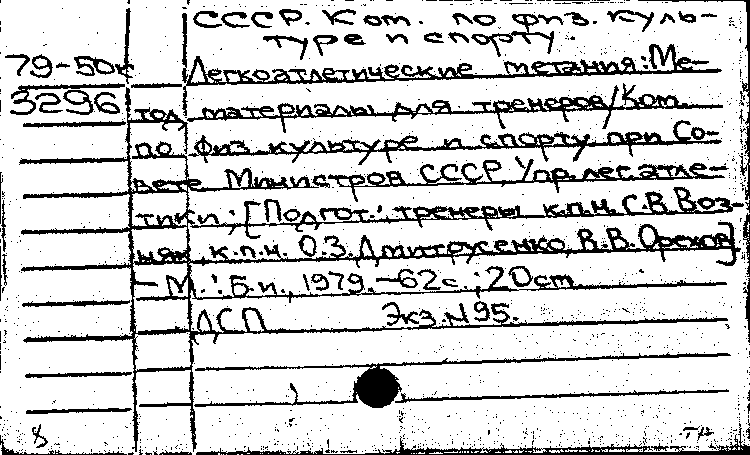 СССР. Ком. по физ. куль-
туре и спорту.
79-50к Легкоатлетические метания: Ме-
3296 тод. материалы для тренеров/Ком.
по физ. культуре и спорту при Со-
вете Министров СССР, Упр. лег. атле-
тики; [Подгот.: тренеры к.п.н. С.В. Воз-
няк, к.п.н. О.З. Дмитрусенко, В.В. Орехов]
— М.: Б.и., 1979. — 62 с.; 20 cm
ДСП Экз. N 95.
8